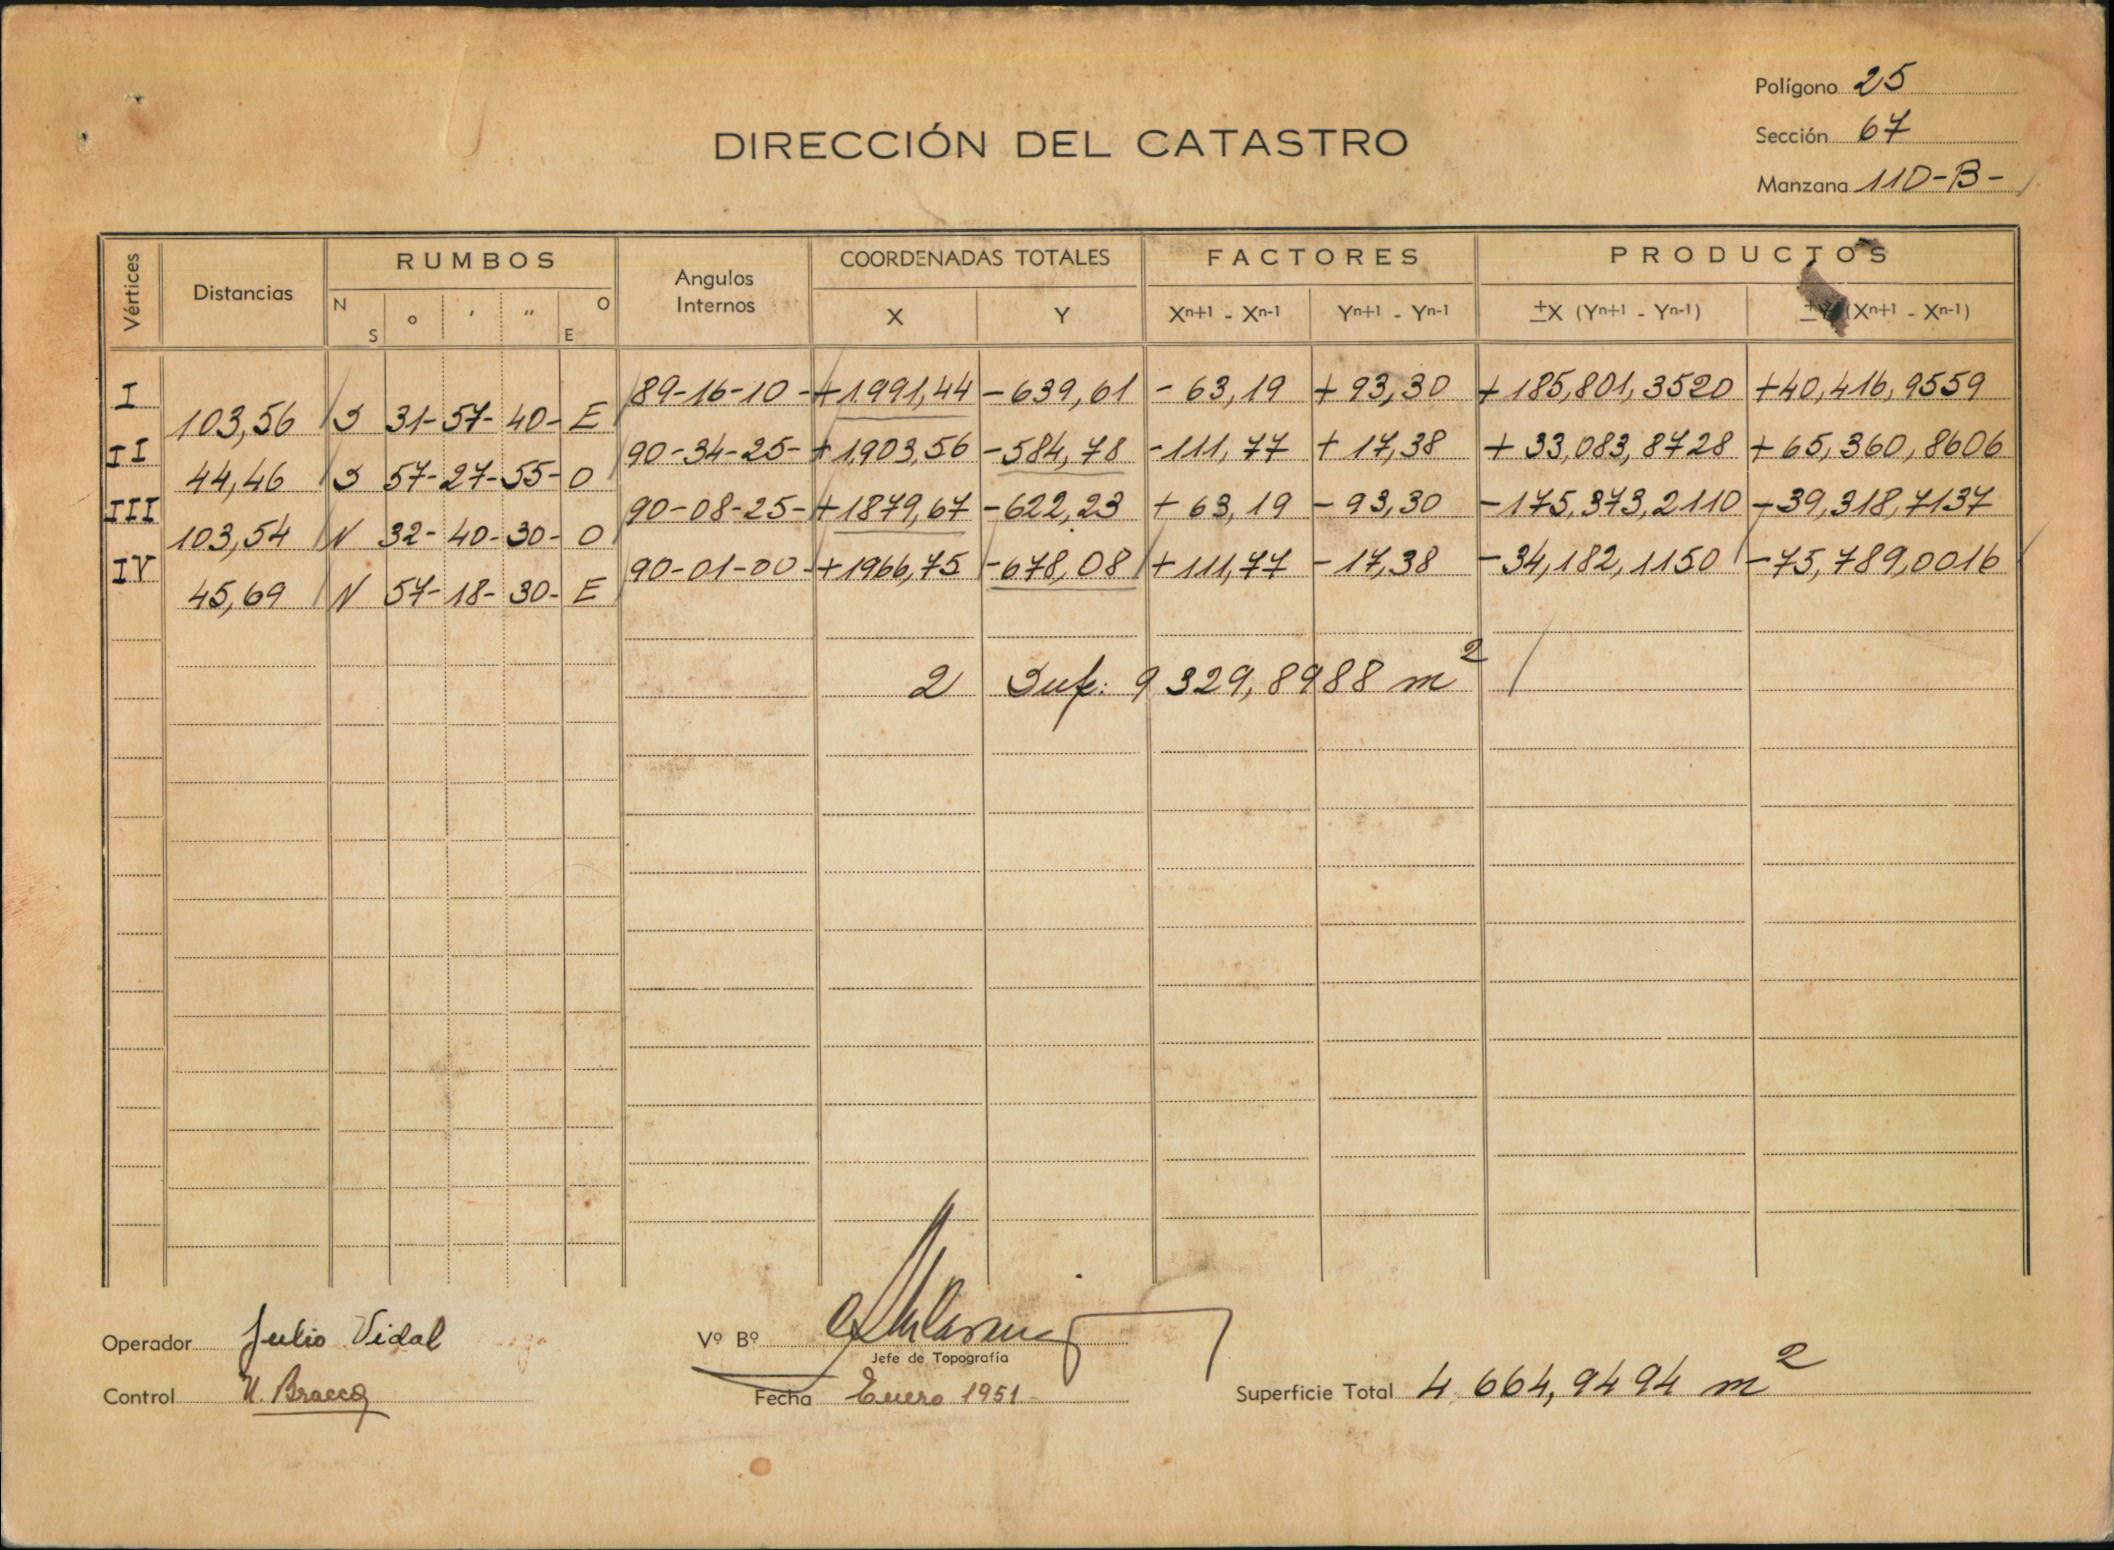 Polígono 25
DIRECCIÓN DEL CATASTRO
Sección 67
Manzana 110-B-
Vértices Distancias RUMBOS Angulos Internos COORDENADAS TOTALES FACTORES PRODUCTOS
N S o ' " O E X Y Xn+1 - Xn-1 Yn+1 - Yn-1 ±X (Yn+1 - Yn-1) (Xn+1 - Xn-1)
I 89-16-10- +1991,44 -639,61 -63,19 +93,30 +185,801,3520 +40,416,9559
103,56 S 31-57-40- E
II 90-34-25- +1903,56 -584,78 -111,77 +17,38 +33,083,8728 +65,360,8606
44,46 S 57-27-55- O
III 90-08-25- +1879,67 -622,23 +63,19 -93,30 -175,373,2110 -39,318,7137
103,54 N 32-40-30- O
IV 90-01-00- +1966,75 -678,08 +111,77 -17,38 -34,182,1150 -75,789,0016
45,69 N 57-18-30- E
2 Sup: 9329,8988 m2
Operador Julio Vidal Vº Bº
Jefe de Topografía
Control U. Bracco Fecha Enero 1951 Superficie Total 4.664,9494 m2